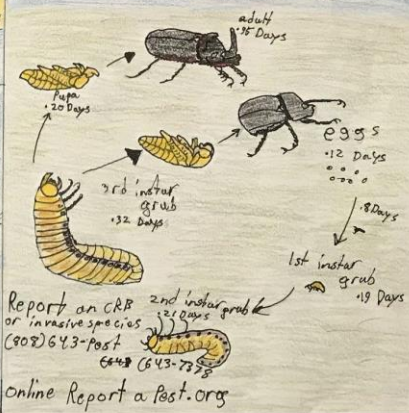 adult
.95 Days
Pupa
.20 Days
eggs
.12 Days
.8 Days
3rd instar
grub
.32 Days
1st instar
grub
.19 Days
2nd instar grub
.21 Days
Report an CRB
or invasive species
(808) 643-Post
(643-7378
online Report a Pest.org